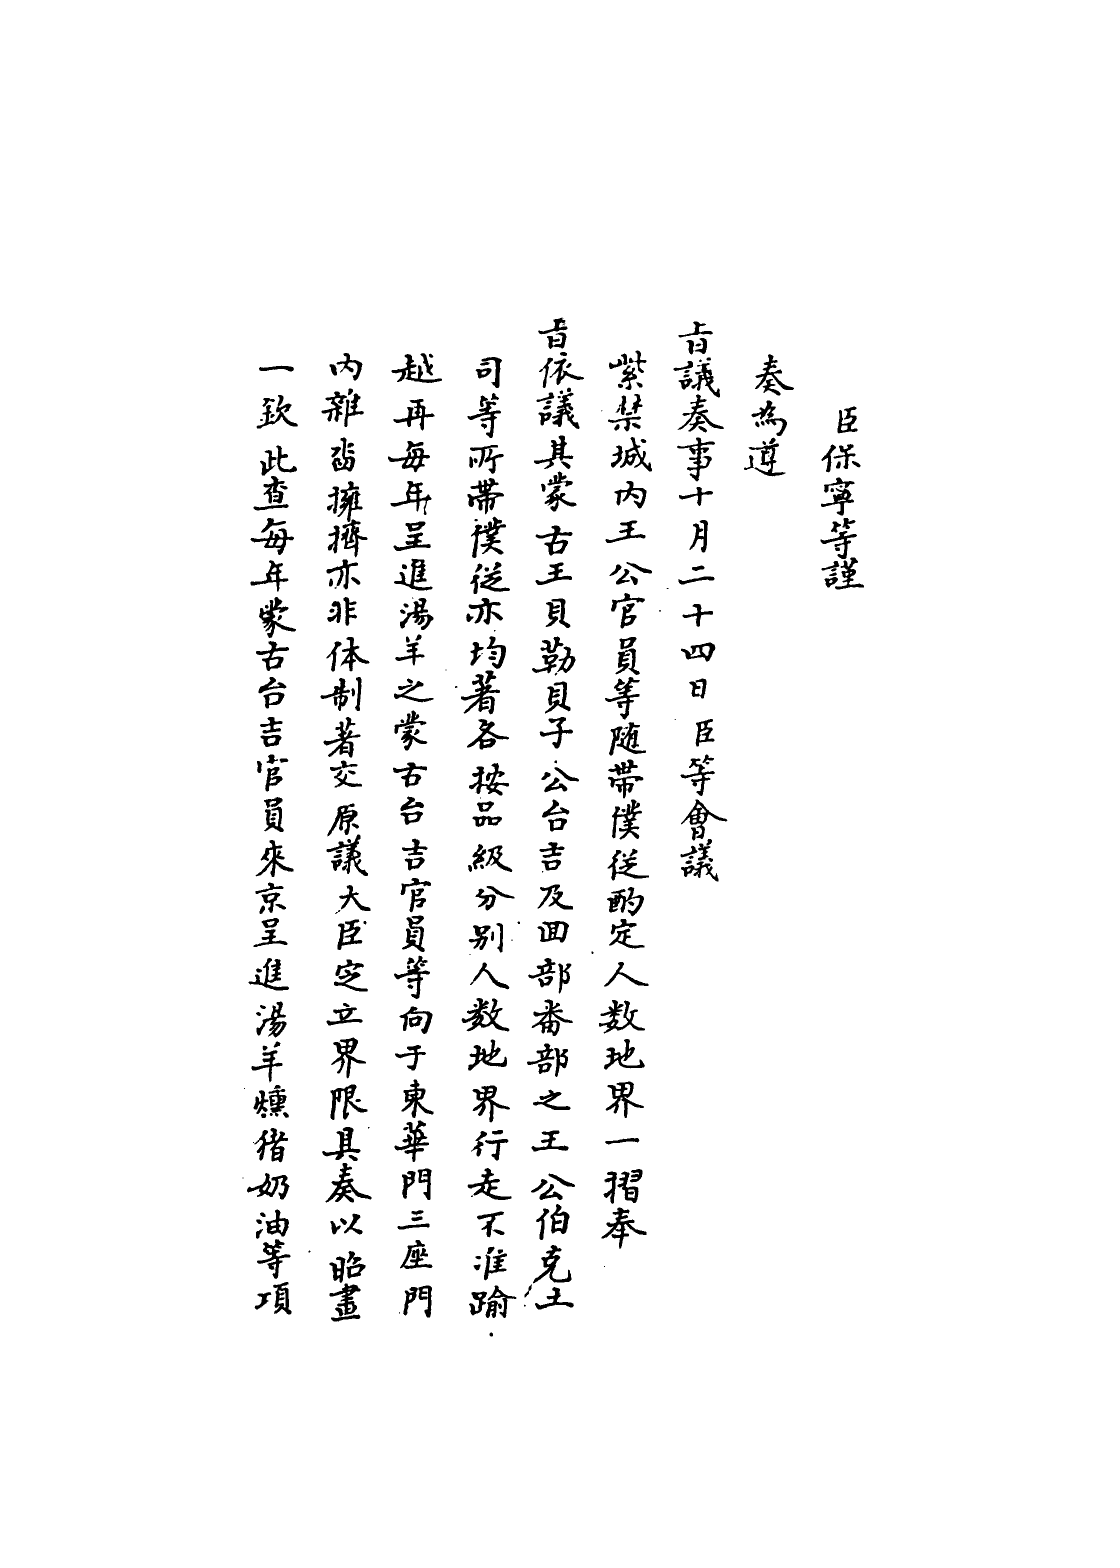 臣保寧等謹
奏為遵
旨議奏事十月二十四日臣等會議
紫禁城內王公官員等随帶僕從酌定人数地界一摺奉
旨依議其蒙古王貝勒貝子公台吉及回部番部之王公伯克土
司等所帶僕從亦均著各按品級分别人数地界行走不准踰
越再每年呈進湯羊之蒙古台吉官員等向于東華門三座門
內雜沓擁擠亦非体制著交原議大臣定立界限具奏以昭畫
一欽此查每年蒙古台吉官員來京呈進湯羊燻猪奶油等項